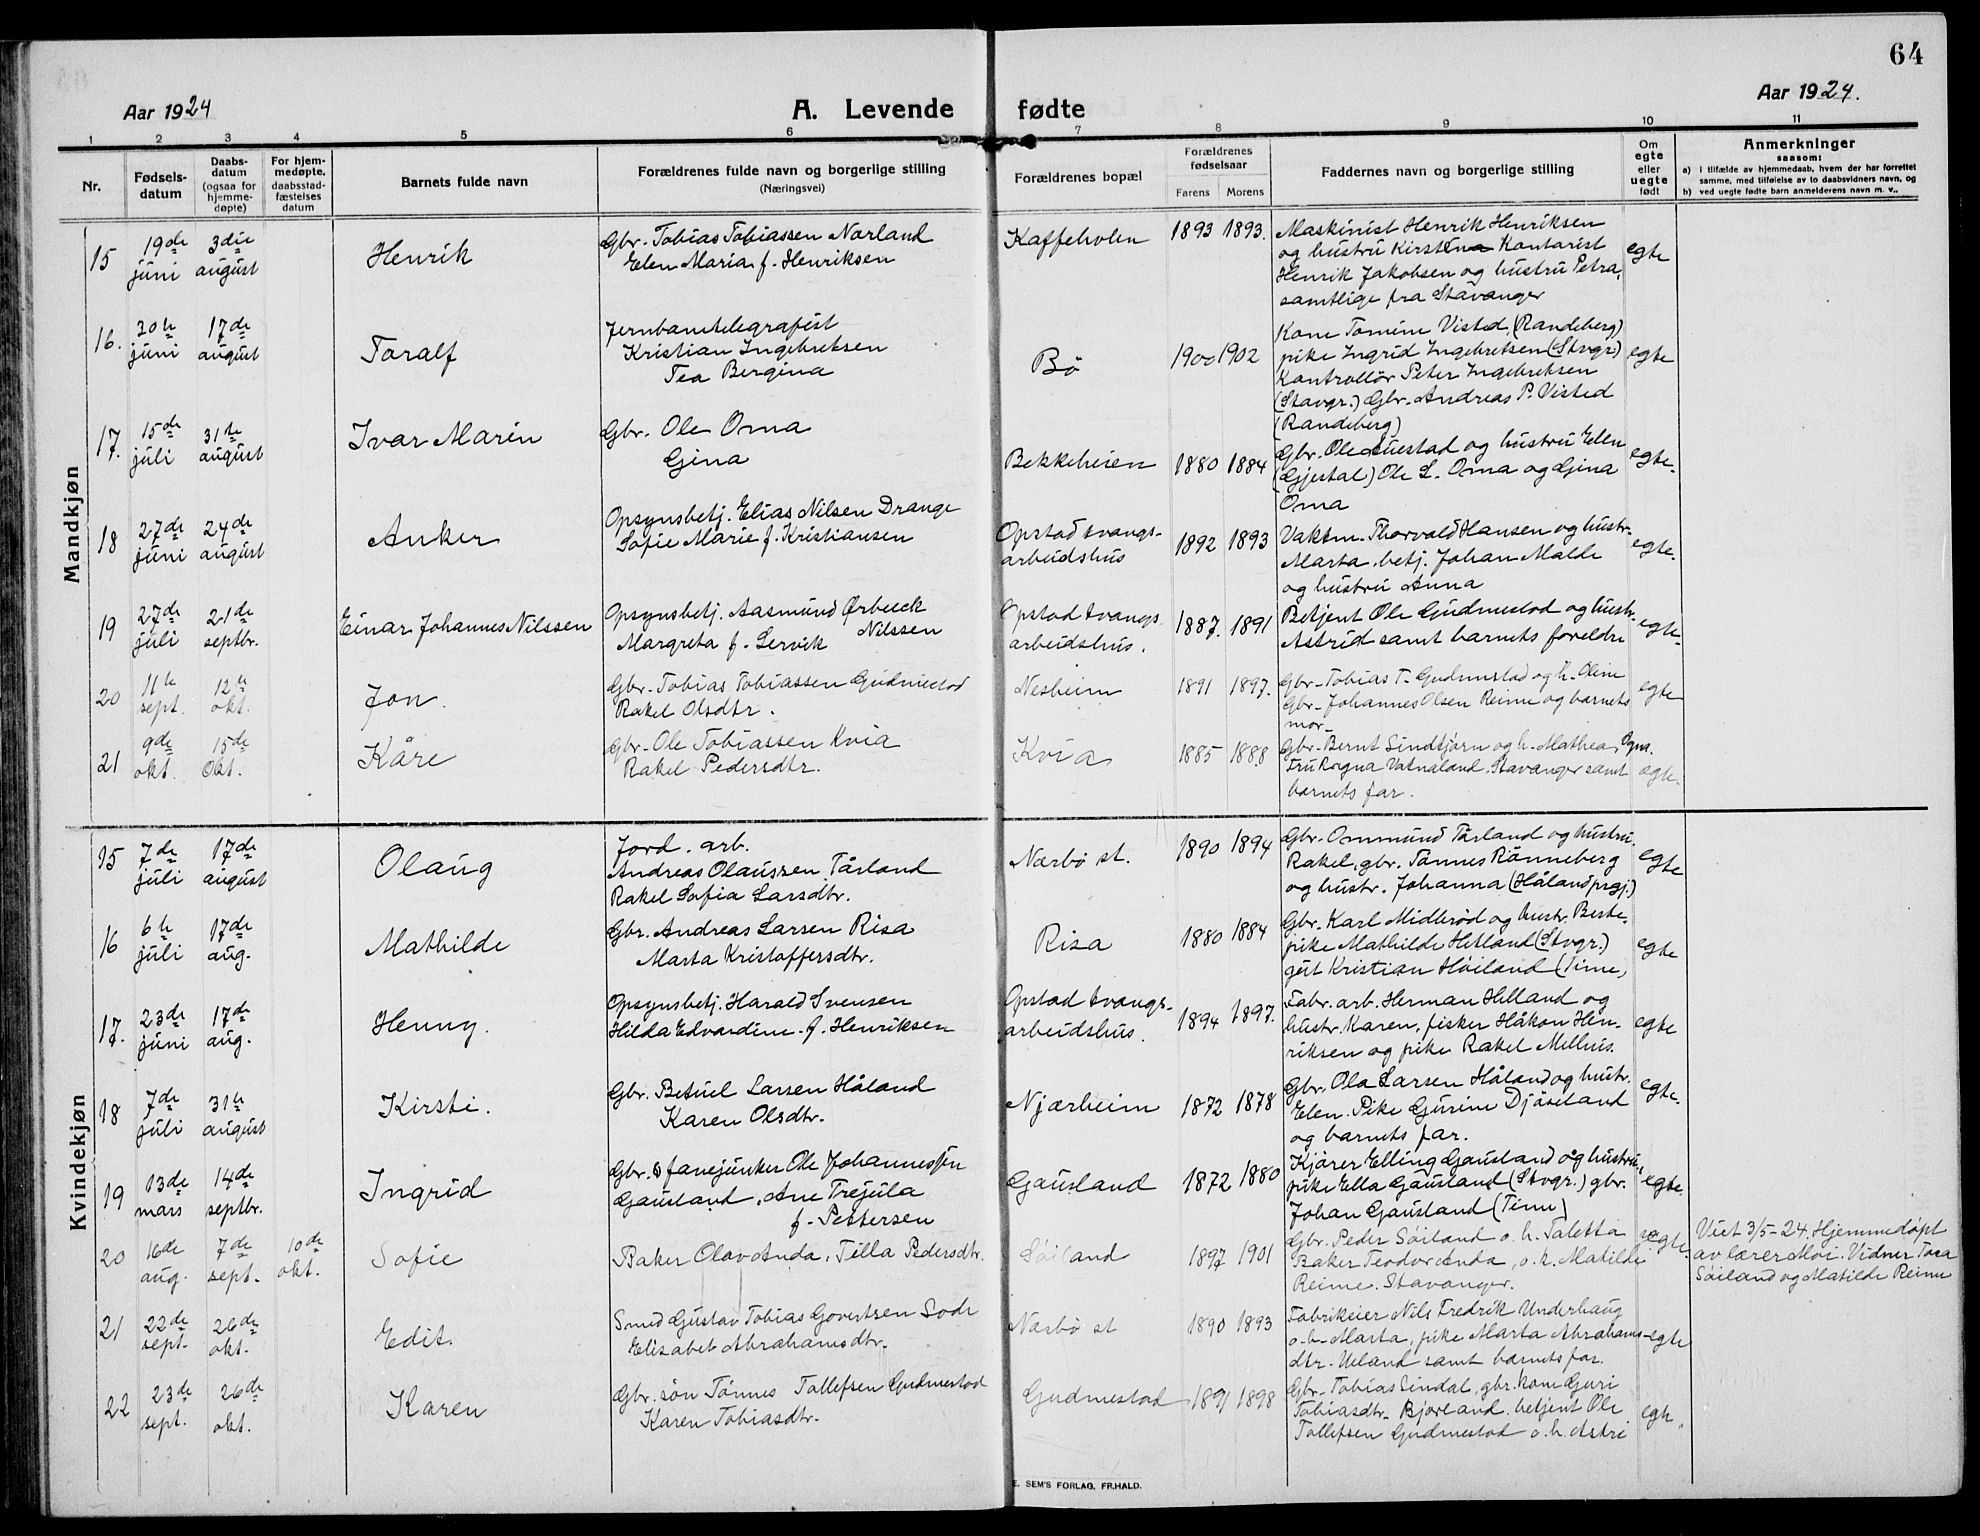 64
Aar 1924
A. Levende fødte
Aar 1924.
1 2 3 4 5 6 7 8 9 10 11
Nr.
Fødsels-
datum
Daabs-
datum
(ogsaa for
hjemme-
døpte)
For hjem-
medøpte,
daabsstad-
fæstelses
datum
Barnets fulde navn
Forældrenes fulde navn og borgerlige stilling
(Næringsvei)
Forældrenes bopæl
Forældrenes
fødselsaar
Farens Morens
Faddernes navn og borgerlige stilling
Om
egte
eller
uegte
født
Anmerkninger
saasom:
a) i tilfælde av hjemmedaab, hvem der har forrettet
samme, med tilføielse av to daabsvidners navn, og
b) ved uegte fødte barn anmelderens navn m. v..
Mandkjøn
15
19de
juni
3die
august
Henrik
Gbr. Tobias Tobiassen Nærland
Elen Maria f. Henriksen
Kaffeholen
1893 1893.
Maskinist Henrik Henriksen
og hustru Kirstina Kontorist
Henrik Jakobsen og hustru Petra,
samtlige fra Stavanger
egte
16.
30te
juni
17de
august
Toralf
Jernbanetelegrafist
Kristian Ingebretsen
Tea Bergina
Bö
1900 1902
Kone Tomine Visted, (Randeberg)
pike Ingrid Ingebretsen (Stvgr.)
Kontrollör Peter Ingebretsen
(Stavgr.) Gbr. Andreas P. Visted
(Randeberg)
egte
17.
15de
juli
31te
august
Ivar Marin
Gbr. Ole Oma
Gina
Bekkeheien
1880 1884
Gbr. Ole Auestad og hustru Elen
(Gjestal) Ole L. Oma og Gina
Oma
egte.
18
27de
juni
24de
august
Anker
Opsynsbetj. Elias Nilsen Drange
Sofie Marie f. Kristiansen
Opstad tvangs-
arbeidshus
1892 1893
Vaktm. Thorvald Hansen og hustr.
Marta, betj. Johan Malde
og hustru Anna
egte.
19
27de
juli
21de
septbr.
Einar Johannes Nilssen
Opsynsbetj. Aasmund Ørbeck
Nilssen
Margreta f. Lervik
Opstad tvangs-
arbeidshus.
1887. 1891
Betjent Ole Gudmestad og hustr.
Astrid samt barnets foreldre
egte.
20
11te
sept.
12te
okt.
Jon.
Gbr. Tobias Tobiassen Gudmestad
Rakel Olsdtr.
Nesheim
1891 1897.
Gbr. Tobias T. Gudmestad og h. Oline
Gbr. Johannes Olsen Reime og barnets
mor.
egte
21
9de
okt.
15de
Okt.
Kåre
Gbr. Ole Tobiassen Kvia
Rakel Pedersdtr.
Kvia
1885 1888
Gbr. Bernt Sindtjörn og h. Mathea, Ogna.
Fru Ragna Vatnaland, Stavanger samt
barnets far.
egte.
Kvindekjøn
15
7de
juli
17de
august
Olaug
Jord. arb.
Andreas Olaussen Tårland
Rakel Sofia Larsdtr.
Nærbö st.
1890 1894
Gbr. Ommund Tårland og hustru
Rakel, gbr. Tönnes Rönneberg
og hustr. Johanna (Håland prgj.)
egte
16
6te
juli
17de
aug.
Mathilde
Gbr. Andreas Larsen Risa
Marta Kristoffersdtr.
Risa
1880 1884
Gbr. Karl Midteröd og hustr. Berte,
pike Mathilde Hetland (Stvgr.)
gut Kristian Höiland (Time)
egte
17.
23de
juni
17de
aug.
Henny.
Opsynsbetj. Harald Svensen
Hilda Edvardine f. Henriksen
Opstad tvangs-
arbeidshus.
1894 1897.
Fabr. arb. Herman Helland og
hustr. Karen, fisker Håkon Hen-
riksen og pike Rakel Melhus.
egte
18
7de
juli
31te
august
Kirsti.
Gbr. Betuel Larsen Håland
Karen Olsdtr.
Njærheim
1872 1878
Gbr. Ola Larsen Håland og hustr.
Elen. Pike Gurine Djöseland
og barnets far.
egte.
19
13de
mars
14de
septbr.
Ingrid
Gbr. & fanejunker Ole Johannessen
Gausland, Ane Trejula
f. Pettersen
Gausland
1872 1880
Kjörer Elling Gausland og hustru,
pike Ella Gausland (Stvgr.) gbr.
Johan Gausland (Time)
egte.
20
16de
aug.
7de
sept.
10de
okt.
Sofie
Baker Olav Anda, Tilla Pedersdtr.
Söiland
1897 1901
Gbr. Peder Söiland o. h. Taletta
Baker Teodor Anda, o. h. Matilde
Reime. Stavanger.
egte.
Viet 3/5-24. Hjemmedøpt
av lærer Moi. Vidner Tora
Söiland og Matilde Reime
21
22de
sept.
26de
okt.
Edit.
Smed Gustav Tobias Govertsen Lode
Elisabet Abrahamsdtr.
Nærbö st
1890 1893
Fabrikeier Nils Fredrik Underhaug
o. h. Marta, pike Marta Abrahams-
dtr. Ueland samt barnets far.
egte
22
23de
sept.
26de
okt.
Karen
Gbr. sön Tönnes Tollefsen Gudmestad
Karen Tobiasdtr.
Gudmestad
1891 1898
Gbr. Tobias Sindal, gbr. kone Guri
Tobiasdtr. Bjorland, betjent Ole
Tollefsen Gudmestad o. h. Astri
egte.
E. SEM'S FORLAG, FR.HALD.